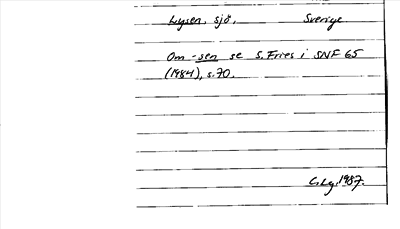 Lysen, sjö, Sverige
Om -sen se S. Fries i SNF 65
(1984), s. 70.
C.Lg. 1987.